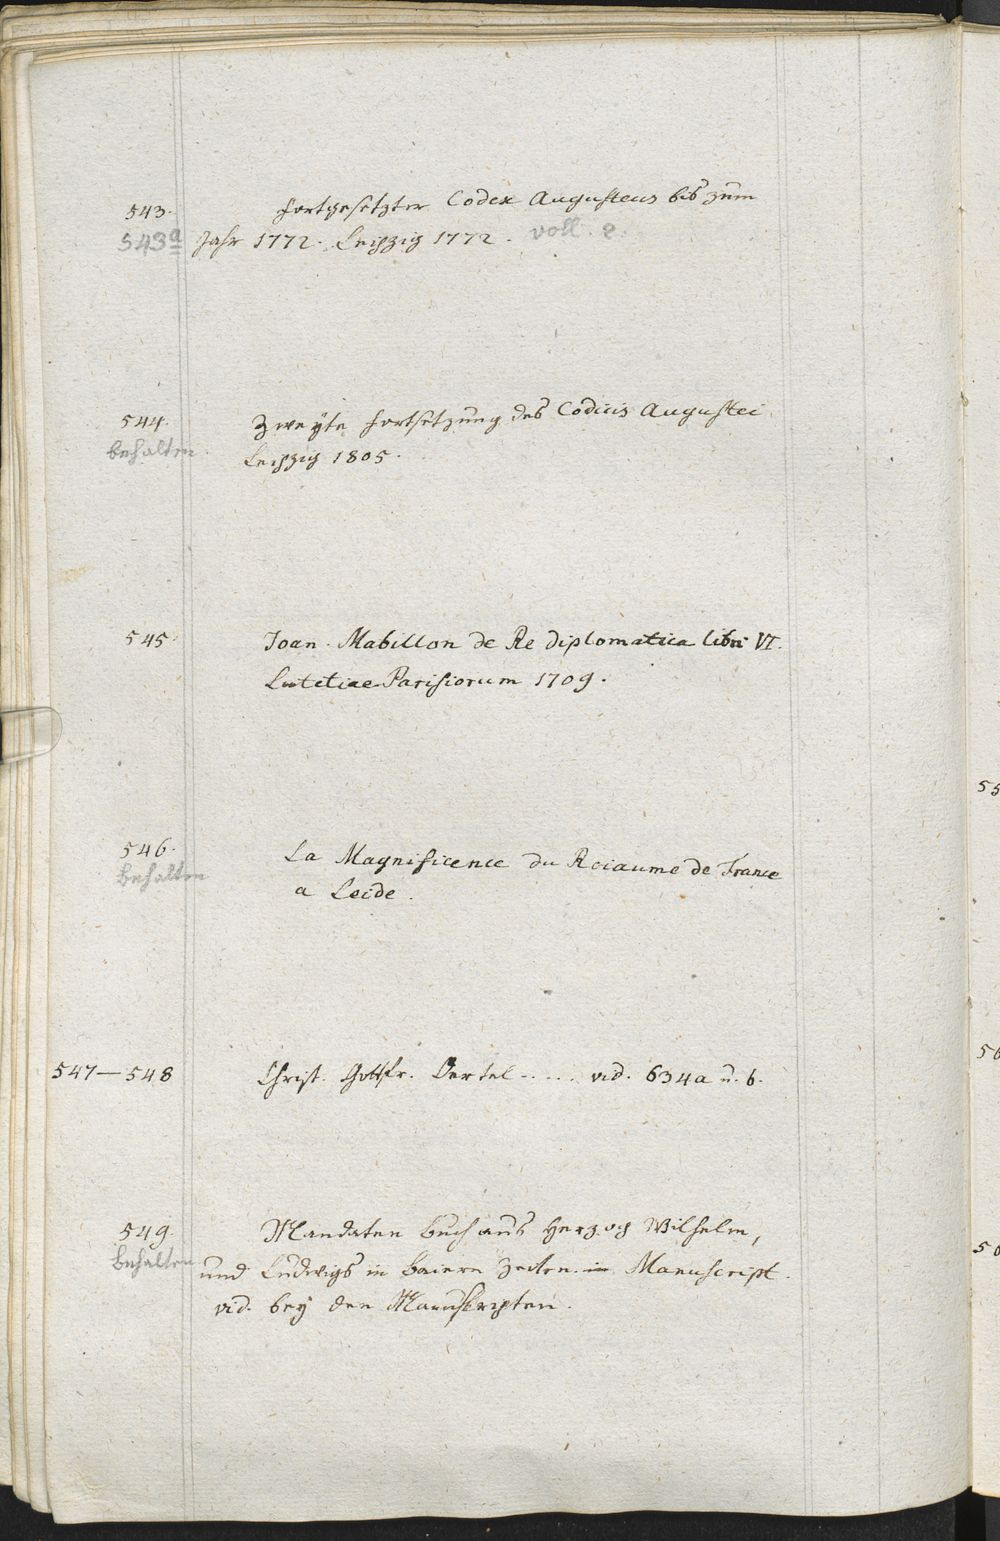 543. Fortgesetzter Codex Augusteus bis zum
543a Jahr 1772. Leipzig 1772. voll. 2.
544. Zweyte Fortsetzung des Codicis Augustei
behalten. Leipzig 1805.
545. Joan. Mabillon de Re diplomatica libri VI.
Lutetiae Parisiorum 1709.
546. La Magnificence du Roiaume de France
behalten a Leide.
547–548 Christ. Gottfr. Oertel - . . . . vid. 634a u. b.
549. Mandaten Buch aus Herzog Wilhelm,
behalten und Ludwigs in Baiern Zeiten. in Manuscript.
vid. bey den Manuscripten.
55
50
50